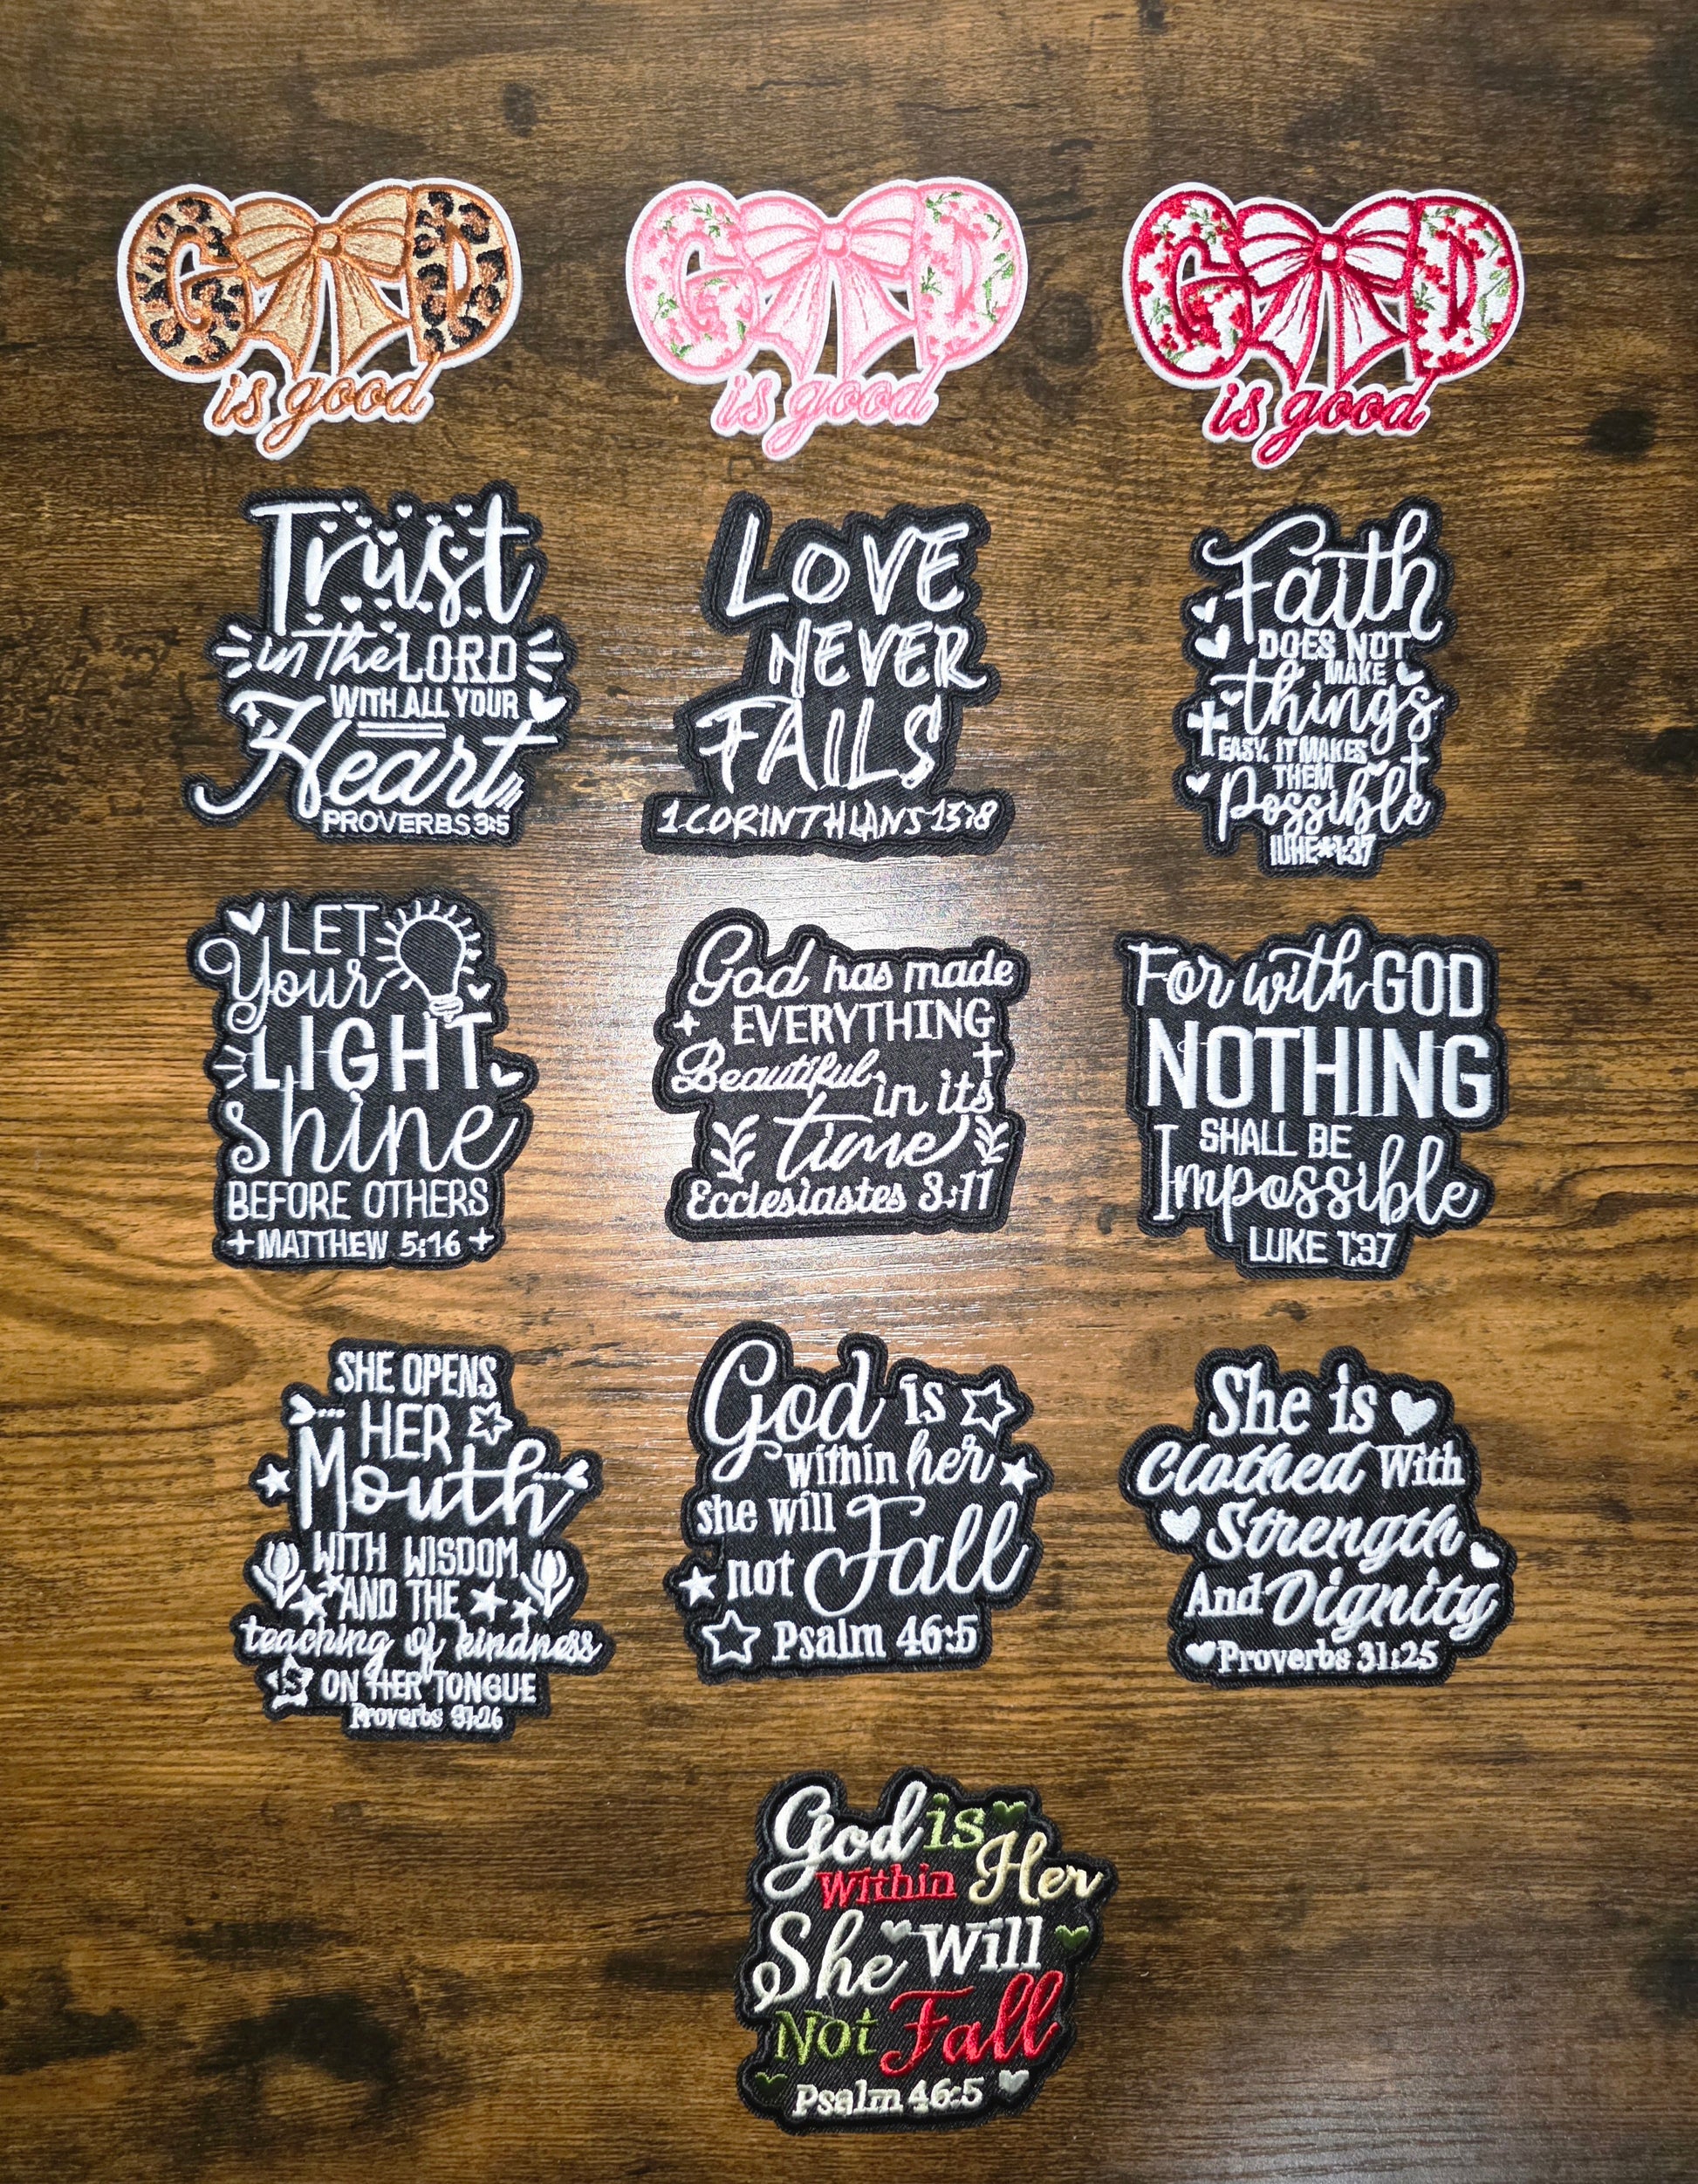 GOD
is good
GOD
is good
GOD
is good
Trust
in the LORD
WITH ALL YOUR
Heart
PROVERBS 3:5
LOVE
NEVER
FAILS
1 CORINTHIANS 13:8
Faith
DOES NOT
MAKE
things
EASY, IT MAKES
THEM
Possible
1:37
LET
Your
LIGHT
shine
BEFORE OTHERS
MATTHEW 5:16
God has made
EVERYTHING
Beautiful
in its
time
Ecclesiastes 3:11
For with GOD
NOTHING
SHALL BE
Impossible
LUKE 1:37
SHE OPENS
HER
Mouth
WITH WISDOM
AND THE
teaching of kindness
ON HER TONGUE
Proverbs 31:26
God is
within her
she will
not Fall
Psalm 46:5
She is
Clothed With
Strength
And Dignity
Proverbs 31:25
God is
Within Her
She Will
Not Fall
Psalm 46:5